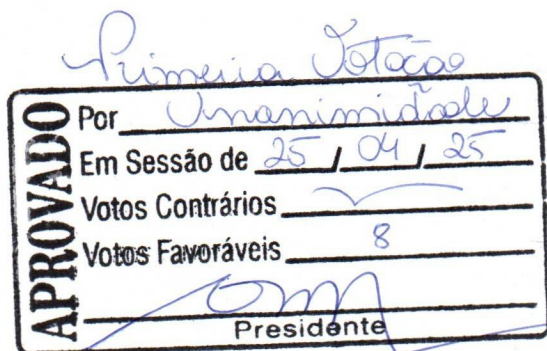 Primeira Votação
APROVADO
Por Unanimidade
Em Sessão de 25 / 04 / 25
Votos Contrários
Votos Favoráveis 8
Presidente